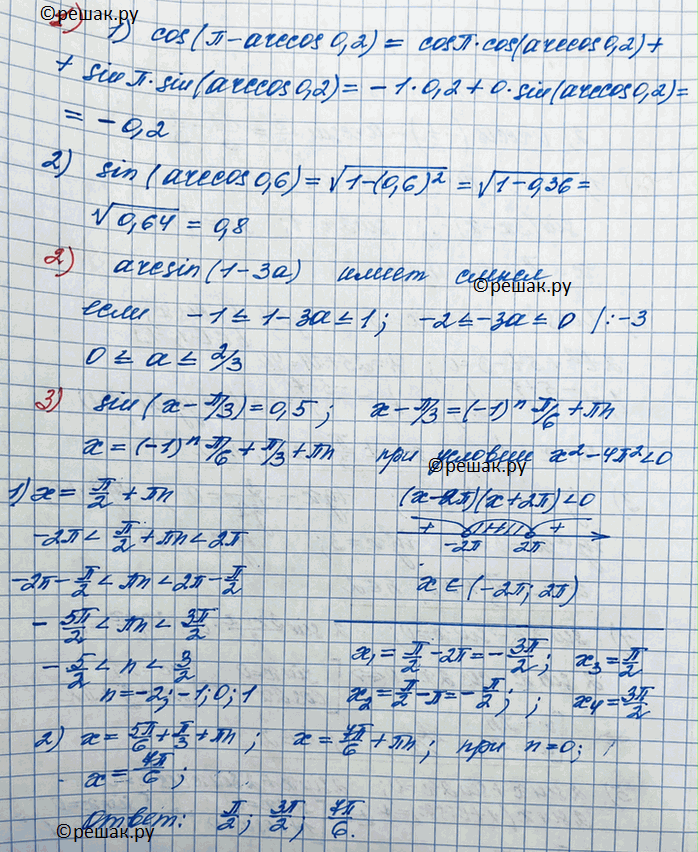 ©решак.ру
1) 1) cos(π-arccos 0,2) = cosπ·cos(arccos 0,2)+
+ sinπ·sin(arccos 0,2) = -1·0,2+0·sin(arccos 0,2)=
= -0,2
2) sin(arccos 0,6) = √(1-(0,6)²) = √(1-0,36) =
√0,64 = 0,8
2) arcsin(1-3a) имеет смысл
©решак.ру
если -1 ≤ 1-3a ≤ 1; -2 ≤ -3a ≤ 0 |:-3
0 ≤ a ≤ 2/3
3) sin(x-π/3) = 0,5; x-π/3 = (-1)ⁿ π/6 + πn
x = (-1)ⁿ π/6 + π/3 + πn при условии x²-4π²<0
©решак.ру
1) x = π/2 + πn
(x-2π)(x+2π)<0
-2π < π/2 + πn < 2π
+ +
-2π 2π
-2π - π/2 < πn < 2π - π/2
x ∈ (-2π; 2π)
-5π/2 < πn < 3π/2
-5/2 < n < 3/2
x₁ = π/2 - 2π = -3π/2; x₃ = π/2
n = -2; -1; 0; 1
x₂ = π/2 - π = -π/2; ; x₄ = 3π/2
2) x = 5π/6 + π/3 + πn; x = 7π/6 + πn; при n=0;
x = 7π/6;
Ответ: π/2; 3π/2; 7π/6.
©решак.ру